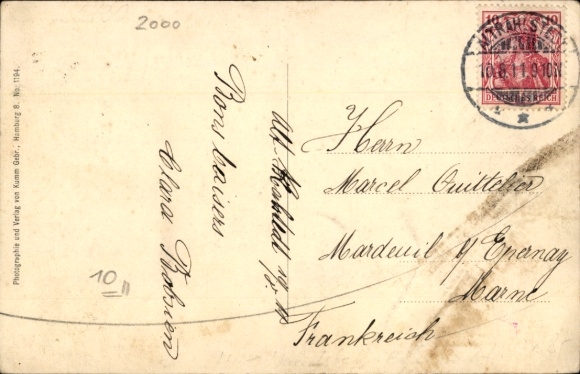 2000
10 10
DEUTSCHES REICH
10.6.11.9-10N
Photographie und Verlag von Kumm Gebr., Hamburg 8. No. 1194.
Bons baisers
Clara
10
II
Herrn
Marcel Quittelier
Mardeuil s/ Epernay
Marne
Frankreich